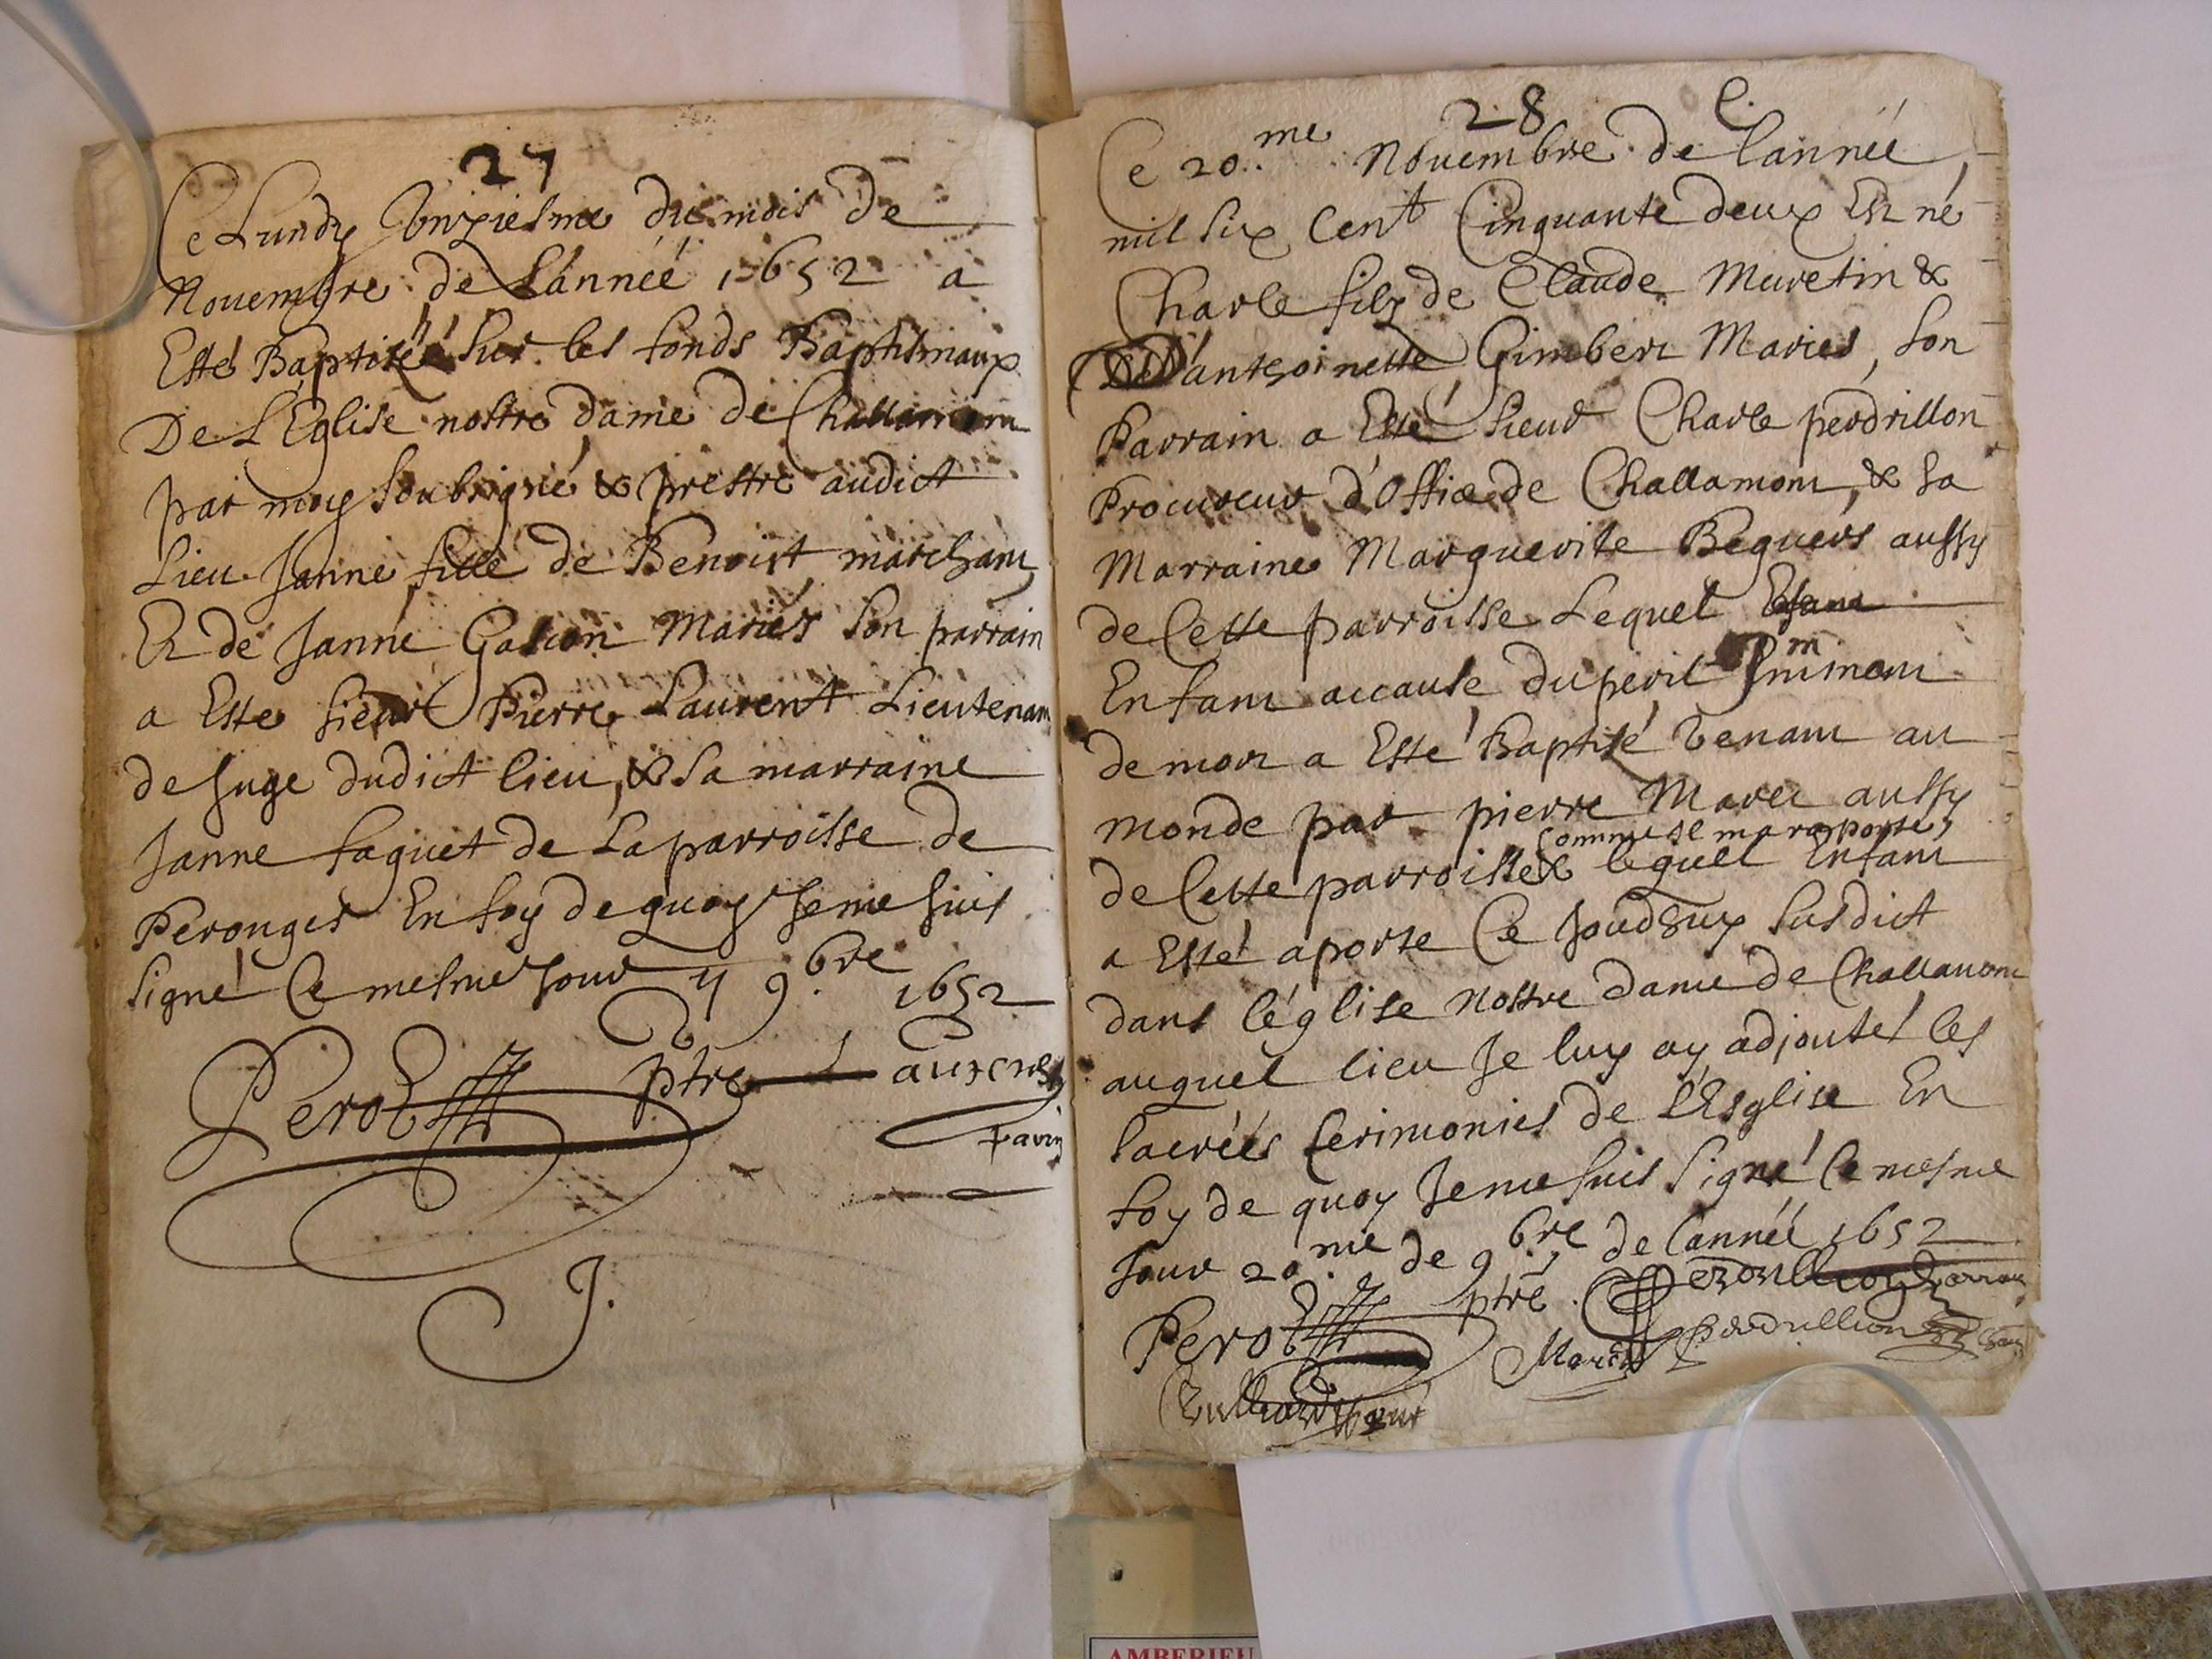 27
Ce Lundy Unziesme du mois de
Nouembre de Lánneé 1652 a
Esté Baptiseé sur les fonds Baptismaux
De L'Eglise nostre dame de Challamom
par moy soubsigné & prestre audict
Lieu Janne fille de Benoist marchant
Et de Janne Gascon Mariés son parrain
a Este sieur Pierre Laurent Lieutenant
de Juge dudict lieu, & sa marraine
Janne faguet de La parroisse de
Peronges En foy de quoy Je me suis
signé Ce mesme Jour 11 9.bre 1652
Perot ptre Laurens
Parrin
J.
28 C.
Ce 20.me Nouembre de Lanneé
mil six Cent Cinquante deux Est né
Charle filz de Claude Muretin &
d'anthoinette Gimbert Mariés, son
Parrain a Esté sieur Charle perdrillon
Procureur d'Office de Challamont, & sa
Marraine Marguerite Beguers aussy
de Cette parroisse Lequel
Enfant accause du peril Imminent
de mort a Esté Baptisé Venant au
monde par pierre Maret aussy
comme Il m'a rapporté,
de Cette parroisse & lequel Enfant
a Esté aporte Ce Jourdhuy susdict
dans léglise Nostre dame de Challamont
auquel lieu Je luy ay adjouté les
sacreés Cerimonies de L'Esglise En
foy de quoy Je me suis signé Ce mesme
Jour 20.me de 9.bre de Lanneé 1652
Perot ptre. Perdrillion parrain
Maret Perdrillion